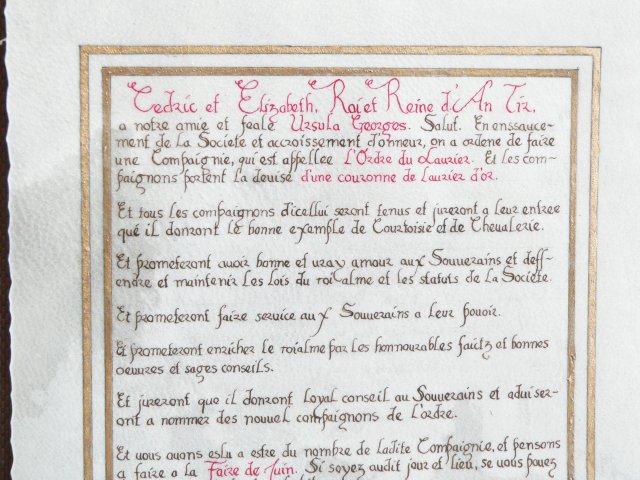 Cedric et Elizabeth, Roi et Reine d'An Tir,
a notre amie et feale Ursula Georges. Salut. En enssauce-
ment de la Societe et accroissement d'onneur, on a ordene de faire
une Compaignie, qui est appellee L'Ordre du Laurier. Et les com-
paignons portent la deuise d'une couronne de laurier d'or.
Et tous les compaignons d'icellui seront tenus et jureront a leur entree
que il donront le bonne example de Courtoisie et de Cheualerie.
Et prometeront auoir bonne et uray amour aux Souuerains et deff-
endre et maintenir les lois du roialme et les statuts de la Societe.
Et prometeront faire seruice aux Souuerains a leur pouoir.
Et prometeront enricher le roialme par les honnourables faitz et bonnes
oeuures et sages conseils.
Et jureront que il donront loyal conseil au Souuerains et aduiser-
ont a nommez des nouuel compaignons de l'ordre.
Et uous auons eslu a estre du nombre de ladite Compaignie, et pensons
a faire a la Faire de Juin. Si soyez audit jour et lieu, se uous pouez